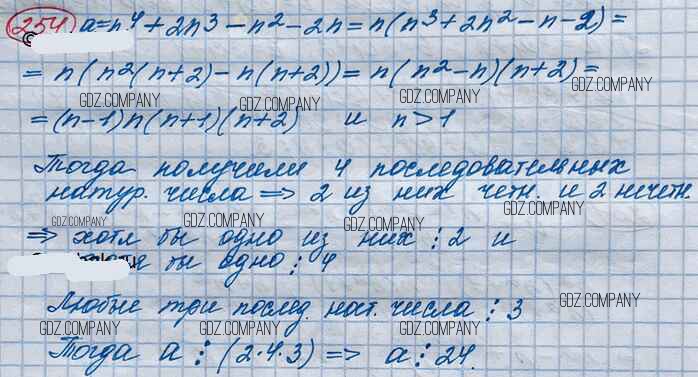 254 a = n⁴ + 2n³ - n² - 2n = n(n³ + 2n² - n - 2) =
= n(n²(n+2) - n(n+2)) = n(n² - n)(n+2) =
GDZ.COMPANY GDZ.COMPANY GDZ.COMPANY GDZ.COMPANY
= (n-1)n(n+1)(n+2) и n > 1
Тогда получили 4 последовательных
натур. числа => 2 из них четн. и 2 нечетн.
GDZ.COMPANY GDZ.COMPANY GDZ.COMPANY GDZ.COMPANY
=> хотя бы одно из них ⋮ 2 и
бы одно ⋮ 4
Любые три послед. нат. числа ⋮ 3
GDZ.COMPANY GDZ.COMPANY GDZ.COMPANY GDZ.COMPANY
Тогда a ⋮ (2·4·3) => a ⋮ 24.